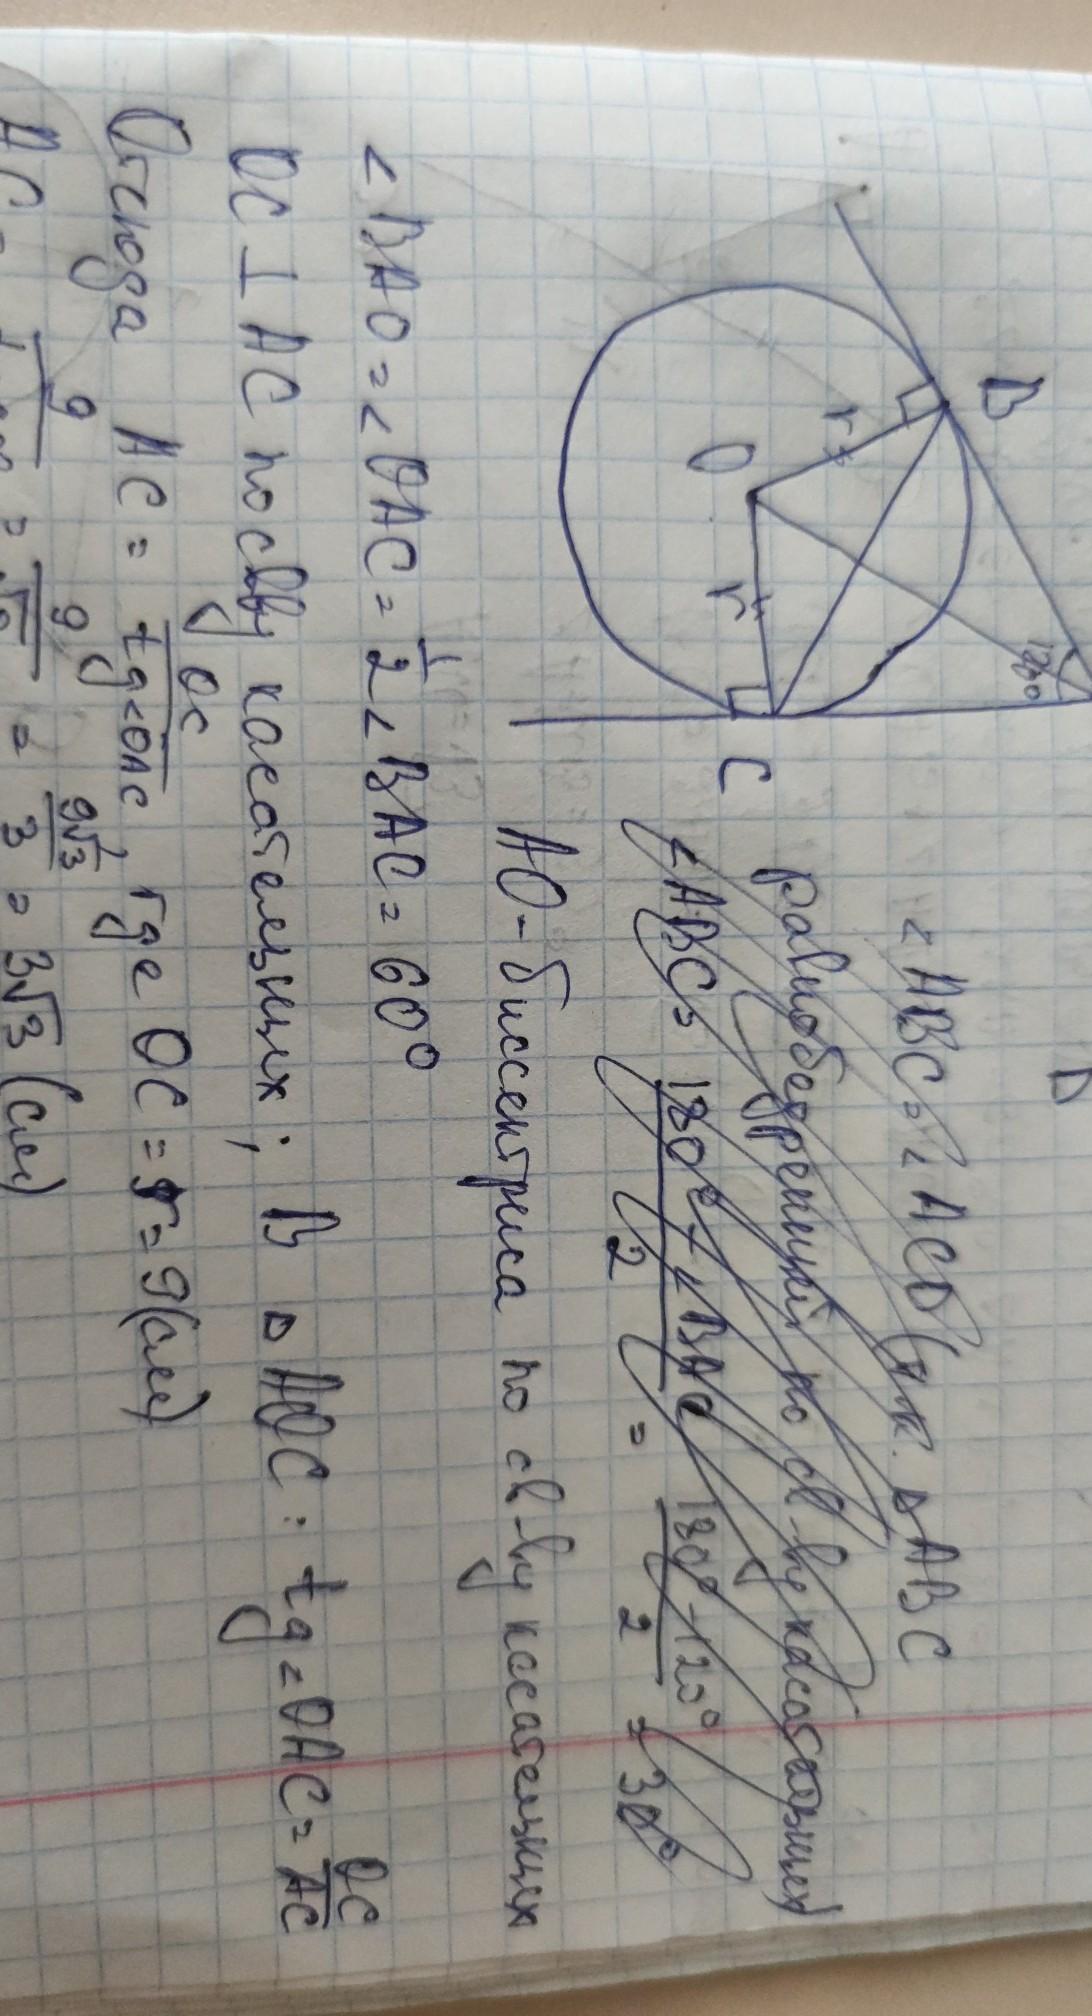 B
r
O
r
120°
C
D
< ABC = < ACB (т.к. ∆ ABC
равнобедренный по св-ву касательных)
< ABC = 180° - < BAC / 2 = 180° - 120° / 2 = 30°
AO - биссектриса по св-ву касательных
< BAO = < OAC = 1/2 < BAC = 60°
OC ⊥ AC по св-ву касательных; В ∆ AOC: tg < OAC = OC/AC
Отсюда AC = OC / tg < OAC, где OC = r = 9 (см)
AC = 9 / = 9 / √3 = 9√3 / 3 = 3√3 (см)